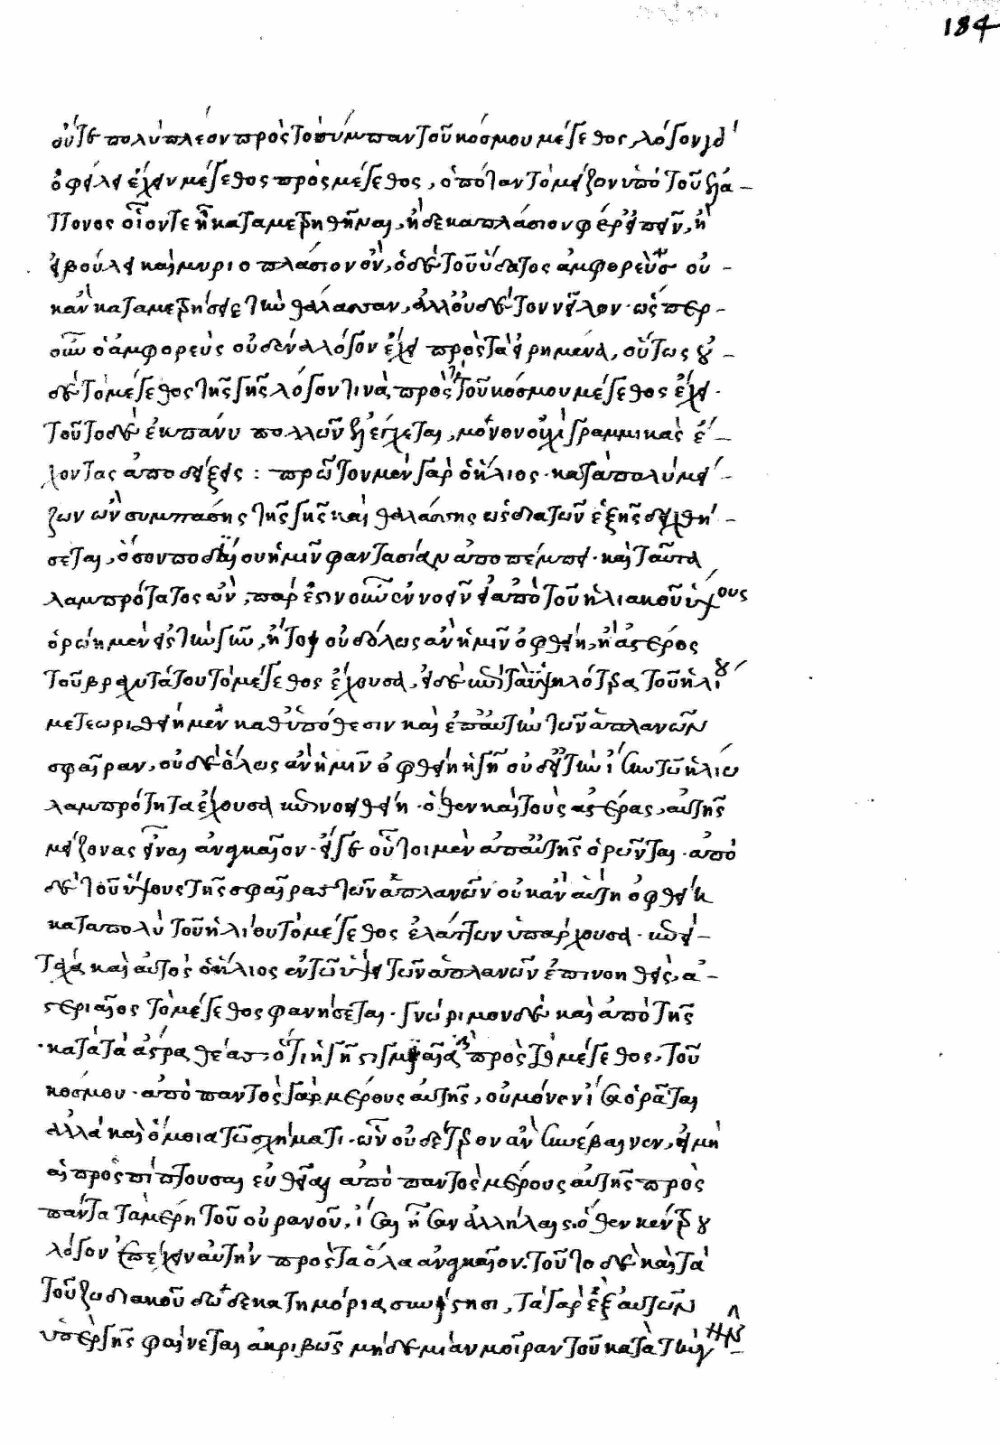 184
οὔτε πολὺ πλέον πρὸς τὸ σύμπαν τοῦ κόσμου μέγεθος, λόγον γὰρ
ὀφείλει ἔχειν μέγεθος πρὸς μέγεθος, ὁπόταν τὸ μεῖζον ὑπὸ τοῦ ἐλά-
ττονος οἷόν τε ᾖ καταμετρηθῆναι, ἢ δεκαπλάσιον φέρε εἰπεῖν, ἢ
εἰ βούλει καὶ μυριοπλάσιον ὄν, ὁ δὲ τοῦ ὕδατος ἀμφορεὺς οὐ-
κ ἂν καταμετρήσειε τὴν θάλασσαν, ἀλλ' οὐδὲ τὸν νεῖλον· ὥσπερ
οὖν ὁ ἀμφορεὺς οὐδένα λόγον ἔχει πρὸς τὰ εἰρημένα, οὕτως οὐ-
δὲ τὸ μέγεθος τῆς γῆς λόγον τινὰ πρὸς τὸ τοῦ κόσμου μέγεθος ἔχει·
τοῦτο δὲ ἐκ πάνυ πολλῶν ἐλέγχεται, μόνον οὐχὶ γραμμικὰς ἐ-
χόντας ἀποδείξεις: πρῶτον μὲν γὰρ ὁ ἥλιος· κατὰ πολὺ μεί-
ζων ὢν συμπάσης τῆς γῆς καὶ θαλάσσης ὡς διὰ τῶν ἑξῆς δειχθή-
σεται, ὅσον ποδιαίου ἡμῖν φαντασίαν ἀποπέμπει· καὶ ταῦτα
λαμπρότατος ὤν, πάρεστιν οὖν ἐννοεῖν εἰ ἀπὸ τοῦ ἡλιακοῦ ὕψους
ὁρώημεν εἰς τὴν γῆν, ἤτοι οὐδόλως ἂν ἡμῖν ὀφθείη, ἢ ἀστέρος
τοῦ βραχυτάτου τὸ μέγεθος ἔχουσα, εἰ δὲ καὶ ἐπὶ τὰ ὑψηλότερα τοῦ ἡλίου
μετεωρισθείημεν καθ' ὑπόθεσιν καὶ ἐπ' αὐτὴν τῶν ἀπλανῶν
σφαῖραν, οὐδ' ὅλως ἂν ἡμῖν ὀφθείη ἡ γῆ οὐδ' εἰ τὴν ἴσην τῷ ἡλίῳ
λαμπρότητα ἔχουσα ἐπινοηθείη· ὅθεν καὶ τοὺς ἀστέρας, αὐτῆς
μείζονας εἶναι ἀναγκαῖον· εἴγε οὗτοι μὲν ἀπ' αὐτῆς ὁρῶνται· ἀπὸ
δὲ τοῦ ὕψους τῆς σφαίρας τῶν ἀπλανῶν οὐκ ἂν αὐτὴ ὀφθείη
κατὰ πολὺ τοῦ ἡλίου τὸ μέγεθος ἐλάττων ὑπάρχουσα· ἐπεὶ
τάχα καὶ αὐτὸς ὁ ἥλιος ἐν τῷ ὕψει τῶν ἀπλανῶν ἐπινοηθείς, ἀ-
στεριαῖος τὸ μέγεθος φανήσεται· γνώριμον δὲ καὶ ἀπὸ τῆς
κατὰ τὰ ἄστρα θέας, ὅτι ἡ γῆ στιγμιαία πρὸς τὸ μέγεθος, τοῦ
κόσμου· ἀπὸ παντὸς γὰρ μέρους αὐτῆς, οὐ μόνον ἴσα ὁρᾶται
ἀλλὰ καὶ ὅμοια τῷ σχήματι· ὧν οὐδέτερον ἂν συνέβαινεν, εἰ μὴ
αἱ προσπίπτουσαι εὐθεῖαι ἀπὸ παντὸς μέρους αὐτῆς πρὸς
πάντα τὰ μέρη τοῦ οὐρανοῦ, ἴσαι ἦσαν ἀλλήλαις, ὅθεν κέντρου
λόγον ἐπέχειν αὐτὴν πρὸς τὰ ὅλα ἀναγκαῖον. τοῦτο δὲ καὶ τὰ
τοῦ ζωδιακοῦ δωδεκατημόρια συνίστησι, τὰ γὰρ ἓξ αὐτῶν
ὑπὲρ γῆς φαίνεται ἀκριβῶς μηδὲ μίαν μοῖραν τοῦ κατὰ τὴν